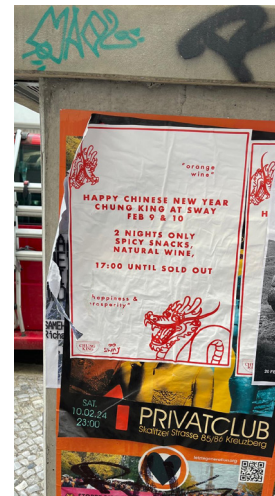 "orange
wine"
HAPPY CHINESE NEW YEAR
CHUNG KING AT SWAY
FEB 9 & 10
2 NIGHTS ONLY
SPICY SNACKS,
NATURAL WINE,
17:00 UNTIL SOLD OUT
happiness &
CHUNG
KING
SAT.
10.02.24
23:00
PRIVATCLUB
Skalitzer Strasse 85/86 Kreuzberg